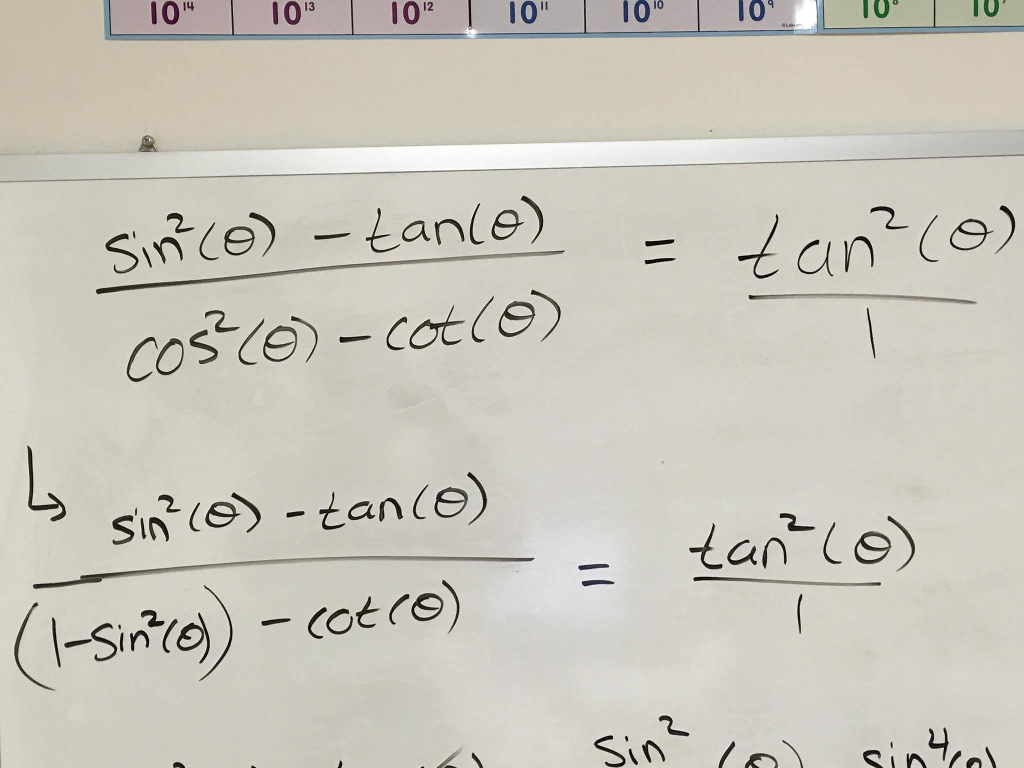 10¹⁴ 10¹³ 10¹² 10¹¹ 10¹⁰ 10⁹ 10⁸ 10⁷
sin²(θ) – tan(θ)
cos²(θ) – cot(θ)
=
tan²(θ)
1
↳
sin²(θ) – tan(θ)
(1–sin²(θ)) – cot(θ)
=
tan²(θ)
1
sin² (θ) sin⁴(θ)